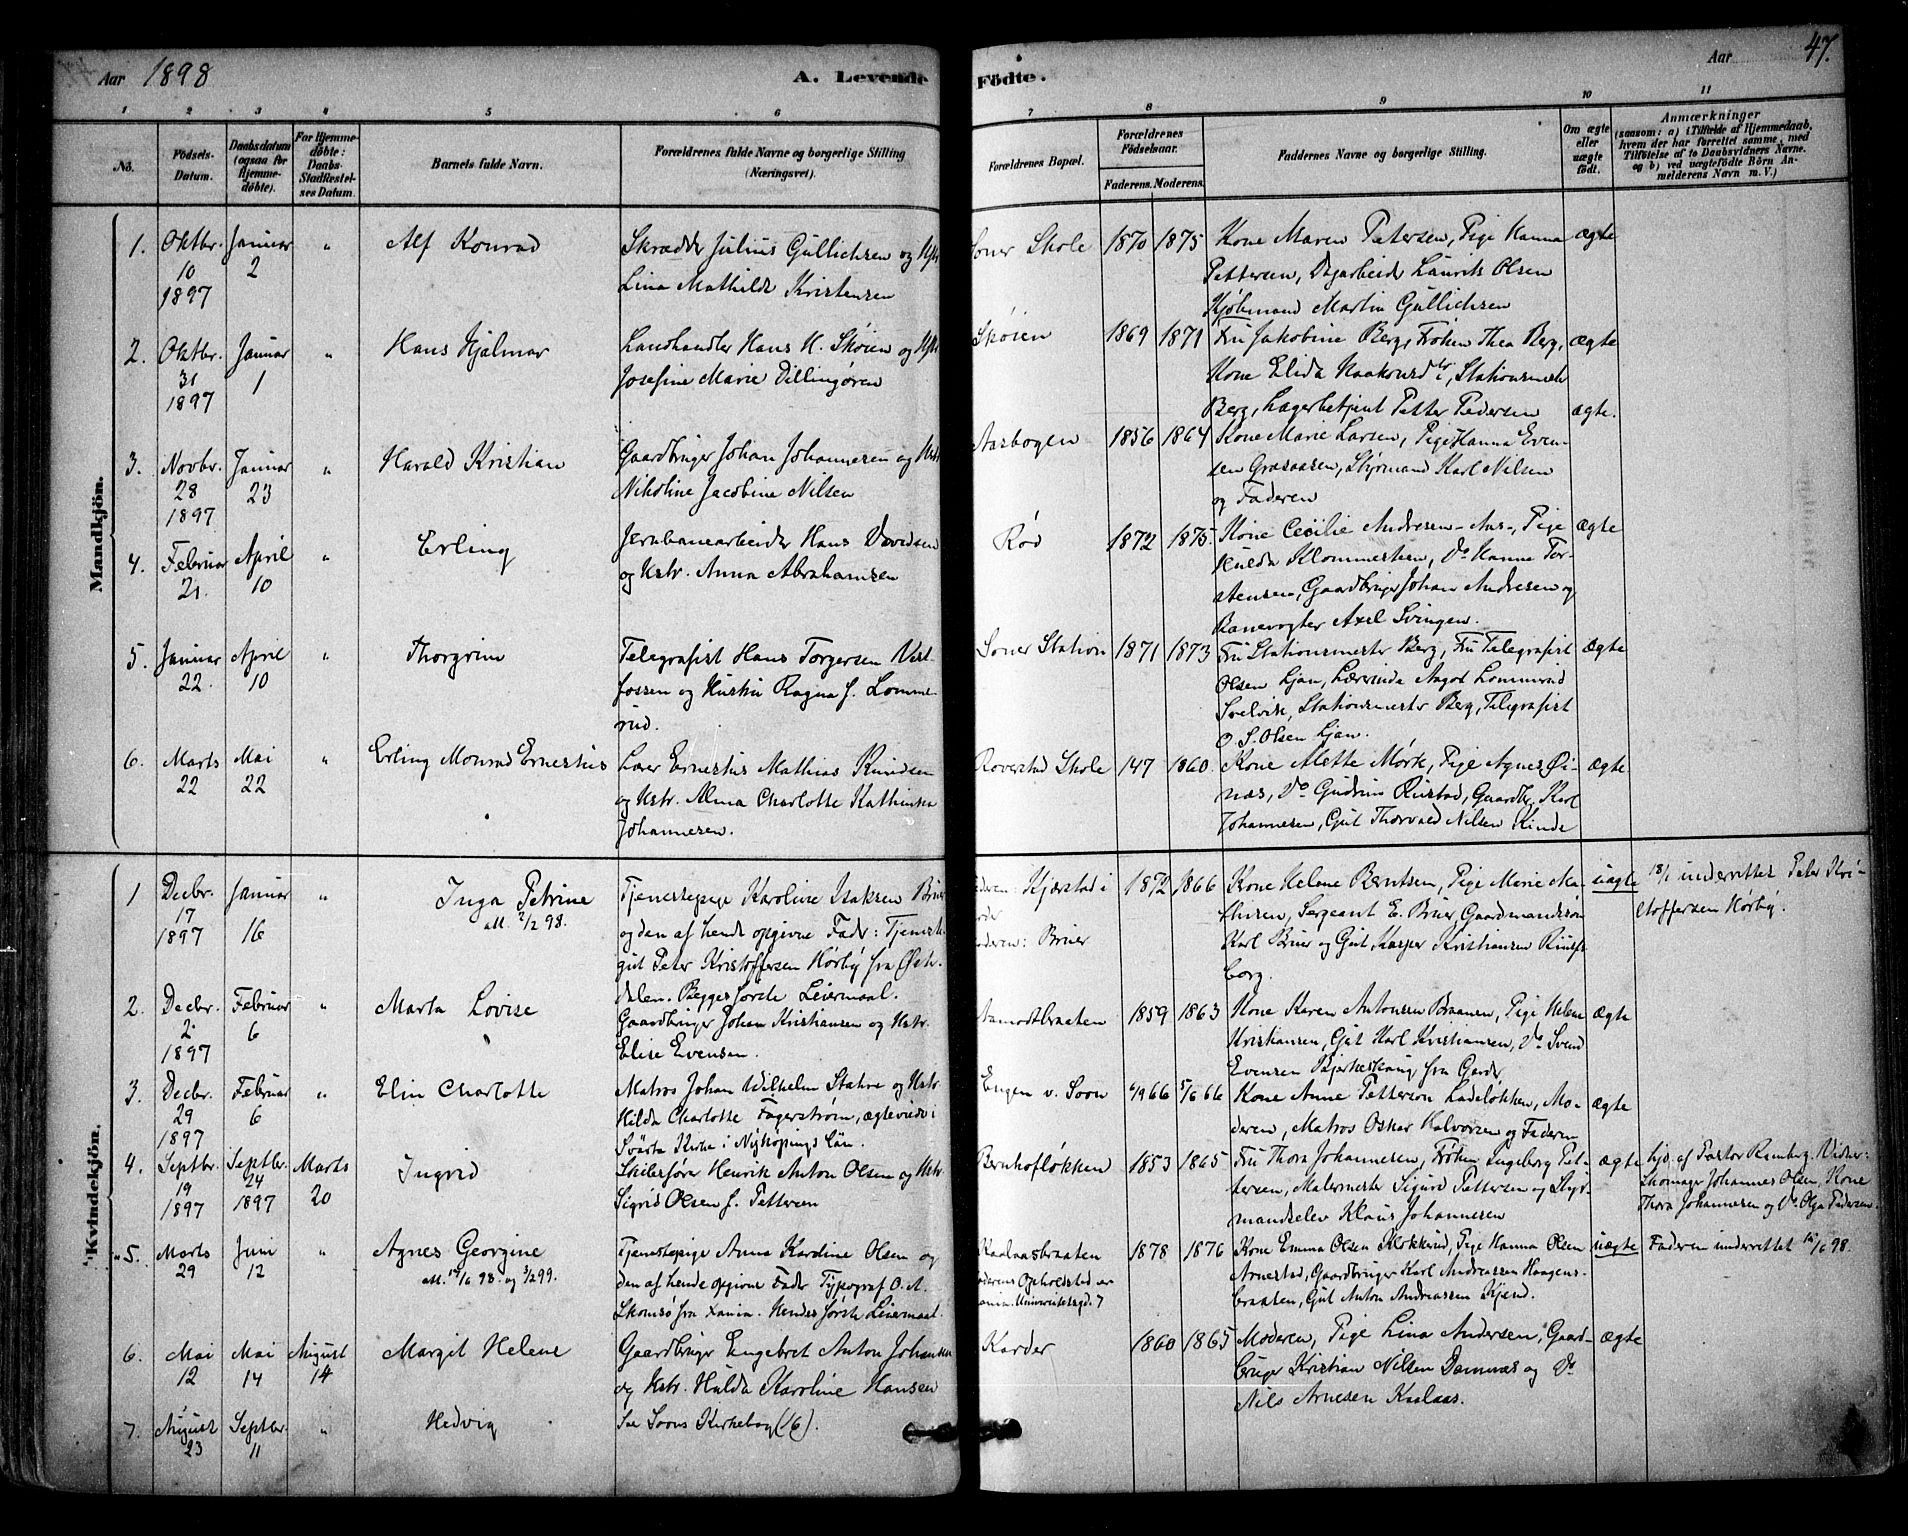 Aar 1898
A. Levende
Födte.
Aar
47.
1 2 3 4 5 6 7 8 9 10 11
No.
Födsels-
Datum.
Daabsdatum
(ogsaa for
Hjemme-
döbte).
For Hjemme-
döbte:
Daabs-
Stadfæstel-
ses Datum.
Barnets fulde Navn.
Forældrenes fulde Navne og borgerlige Stilling
(Næringsvei).
Forældrenes Bopæl.
Forældrenes
Födselsaar.
Faderens. Moderens.
Faddernes Navne og borgerlige Stilling.
Om ægte
eller
uægte
födt.
Anmærkninger
(saasom: a) i Tilfælde af Hjemmedaab,
hvem der har forrettet samme, med
Tilföielse af to Daabsvidners Navne.
og b) ved uægtefödte Börn An-
melderens Navn m. V.)
Mandkjön.
1. Oktbr. 10 1897
Januar 2
"
Alf Konrad
Skrædder Julius Gullichsen og Hstr.
Lina Mathilde Kristensen
Soner Skole
1870 1875
Kone Maren Petersen, Pige Hanna
Pettersen, Dagarbeider Laurits Olsen
Kjøbmand Martin Gullichsen
ægte
2. Oktbr. 31 1897
Januar 1
"
Hans Hjalmar
Landhandler Hans H. Skøien og Hstr.
Josefine Marie Dillingøren
Skøien
1869 1871
Fru Jakobine Berg, Frøken Thea Berg,
Kone Elida Haakonsdtr, Stationsmester
Berg, Lagerbetjent Petter Pedersen
ægte
ægte.
3. Novbr. 28 1897
Januar 23
"
Harald Kristian
Gaardbruger Johan Johannesen og Hstr.
Nikoline Jacobine Nilsen
Aasbogen
1856 1864
Kone Marie Larsen, Pige Hanna Even-
sen Graaaasen, Styrmand Karl Nilsen
og Faderen
4. Februar 21.
April 10
"
Erling
Jernbanearbeider Hans Davidsen
og Hstr. Anna Abrahamsen
Rød
1872 1875
Kone Cecilie Andresen-Aas-, Pige
Hulda Klommesteen, Do Hanna Tor-
stensen, Gaardbruger Johan Andresen og
Banevogter Axel Svingen.
ægte
5. Januar 22.
April 10
"
Thorgrim
Telegrafist Hans Torgersen Vest-
fossen og Hustru Ragna f. Lomme-
rud.
Soner Station
1871 1873
Fru Stationsmester Berg, Fru Telegrafist
Olsen Ljan, Lærerinde Aagot Lommerud
Svelvik, Stationsmester Berg, Telegrafist
O. S. Olsen Ljan.
ægte
6. Marts 22
Mai 22
"
Erling Monrad Ernestus
Lærer Ernestus Mathias Knudsen
og Hstr. Alma Charlotte Kathinka
Johannesen.
Roverstad Skole
1847 1860.
Kone Mette Mørk, Pige Agnes Øi-
næs, Do Gudrun Rustad, Gaardbr. Karl
Johannesen, Gut Thorvald Nilsen Kinde
ægte.
Kvindekjön.
1 Decbr. 17 1897
Januar 16
"
Inga Petrine
att. 2/2 98.
Tjenestepige Karoline Isaksen Bruer
og den af hende opgivne Fader: Tjeneste-
gut Peter Kristoffersen Hørby fra Øst-
dalen. Begges første Leiermaal.
Faderen: Kjærstad i
Moderen: Bruer
1872 1866
Kone Helene Berntsen, Pige Marie Ma-
thisen, Sergeant E. Bruer, Gaardmandssøn
Karl Bruer og Gut, Kasper Kristiansen Ruds-
borg.
uægte
18/1 underrettet Peter Kri-
stoffersen Hørby.
2. Decbr. 2. 1897
Februar 6
"
Marta Lovise
Gaardbruger Johan Kristiansen og Hstr.
Elise Evensen.
Aamodtbraaten
1859 1863
Kone Karen Antonsen Braanen, Pige Helene
Kristiansen, Gut Karl Kristiansen, Do Svend
Evensen Bjerkeshaug fra Garder
ægte
3. Decbr. 29 1897
Februar 6
"
Elin Charlotte
Matros Johan Wilhelm Stahre og Hstr.
Hilda Charlotte Fagerstrøm, ægteviede i
Svärta Kirke i Nyköpings Län.
Engen v. Soon
6/9 66 5/6 66
Kone Anne Petterson Ladeløkken, Mo-
deren, Matros Oskar Halvorsen og Faderen
ægte
4. Septbr. 19 1897
Septbr. 24 1897
Marts 20
Ingrid
Skibsfører Henrik Anton Olsen og Hstr.
Sigrid Olsen f. Pettersen
Bernhofløkken
1853 1865
Fru Thora Johannesen, Frøken Ingeborg Pet-
tersen, Malermester Sigurd Pettersen og Styr-
mandselev Klaus Johannesen
ægte
hjd. af Pastor Ramberg. Vidner:
Skomager Johannes Olsen, Kone
Thora Johannesen og Do Olga Pedersen.
5. Marts 29
Juni 12
"
Agnes Georgine
att. 14/6 98. og 3/2 99.
Tjenestepige Anna Karoline Olsen og
den af hende opgivne Fader Typograf O. A.
Skomsø fra Xania. Hendes første Leiermaal.
Kaalaasbraaten
Moderens Opholdsted er
Xania. Universitetsgd. 7
1878 1876
Kone Emma Olsen Mokkerud, Pige Hanna Olsen
Arnestad, Gaardbruger Karl Andreassen Haagens-
braaten, Gut Anton Andreassen Kjend.
uægte
Faderen underrettet 16/6 98.
6. Mai 12
Mai 14
August 14
Margit Helene
Gaardbruger Engebret Anton Johansen
og Hstr. Hulda Karoline Hansen
Karder
1860 1865
Moderen, Pige Lina Andersen, Gaard-
bruger Kristian Nilsen Damnæs og Do
Nils Arnesen Kaalaas.
ægte
7. August 23
Septbr. 11
"
Hedvig
Se Soons Kirkebog (16).